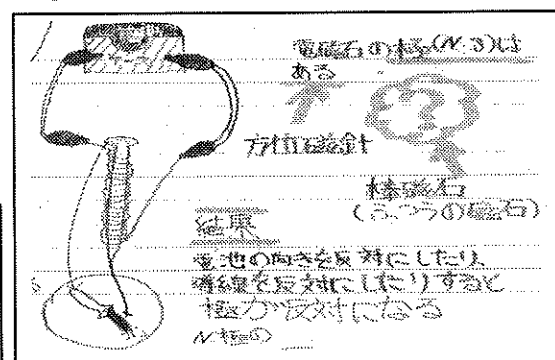 電磁石の極(N・S)は
ある
?
方位磁針
棒磁石
(ふつうの磁石)
結果
電池の向きを反対にしたり、
導線を反対にしたりすると
極が反対になる
N極の